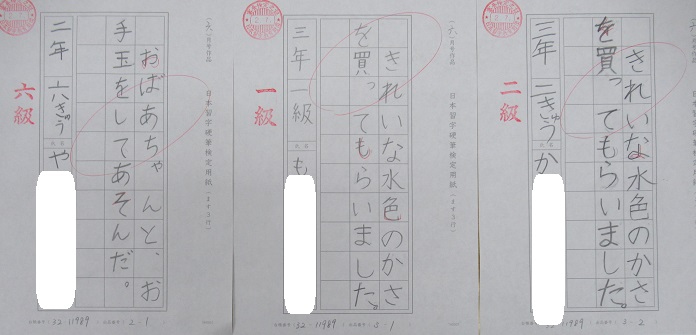 二級
三年 二きゅう か
きれいな水色のかさ
を買ってもらいました。
日本習字硬筆検定用紙(ます3行)
32-11989
2-2
一級
三年 一級 も
きれいな水色のかさ
を買ってもらいました。
日本習字硬筆検定用紙(ます3行)
32-11989
2-1
六級
二年 六きゅう や
おばあちゃんと、お
手玉をしてあそんだ。
日本習字硬筆検定用紙(ます3行)
32-11989
2-1